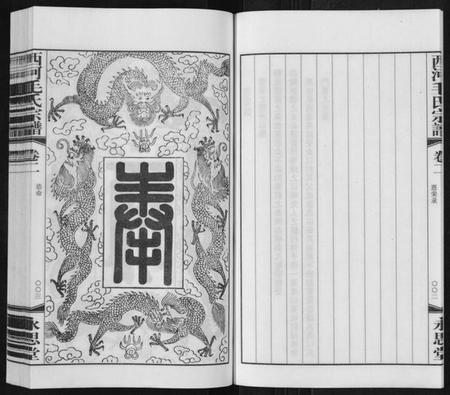 西河毛氏宗譜
卷二
恩榮录
〇〇二
永思堂
奉
西河毛氏宗譜
〇〇三
永思堂